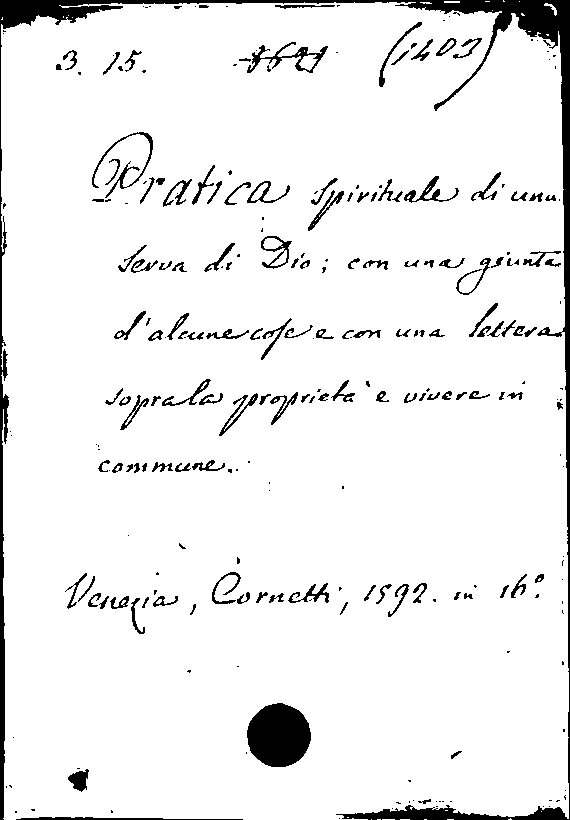 3. 15. 8621 (1403)
Pratica spirituale di una
serva di Dio; con una giunta
d'alcune cose e con una lettera
sopra la proprietà e vivere in
commune.
Venezia, Cornetti, 1592. in 16°.